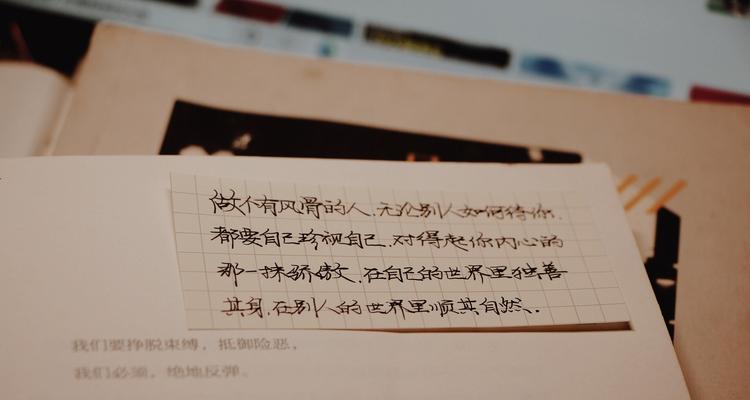 做个有风骨的人.无论别人如何待你.
都要自己珍视自己.对得起你内心的
那一抹骄傲.在自己的世界里独善
其身.在别人的世界里顺其自然.
我们要挣脱束缚，抵御险恶，
我们必须，绝地反弹。